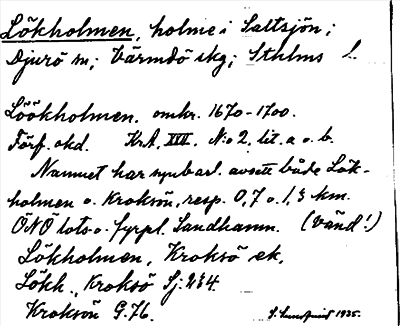 Lökholmen, holme i Saltsjön;
Djurö sn; Värmdö skg; Sthlms l.
Löökholmen. omkr. 1670-1700.
Förf. okd. KrA. XVII. N:o 2, lit. a o. b.
Namnet har uppbarl. avsett både Lök-
holmen o. Kroksön, resp. 0,7 o. 1,3 km.
ÖNÖ lots- o. fyrpl. Sandhamn. (Vänd!)
Lökholmen, Kroksö ek.
Lökh., Kroksö Sj. 234.
Kroksön G. 76.
1935.